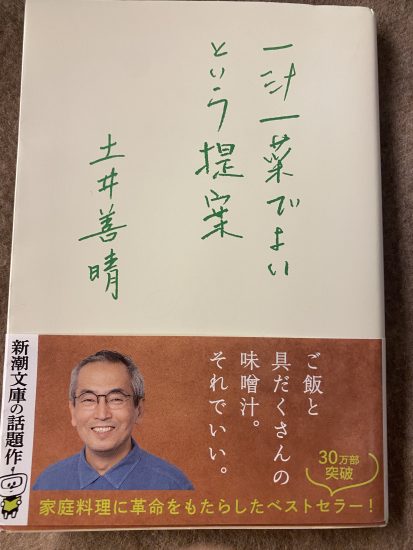 一汁一菜でよい
という提案
土井善晴
ご飯と
具だくさんの
味噌汁。
それでいい。
30万部
突破
新潮文庫の話題作
家庭料理に革命をもたらしたベストセラー！